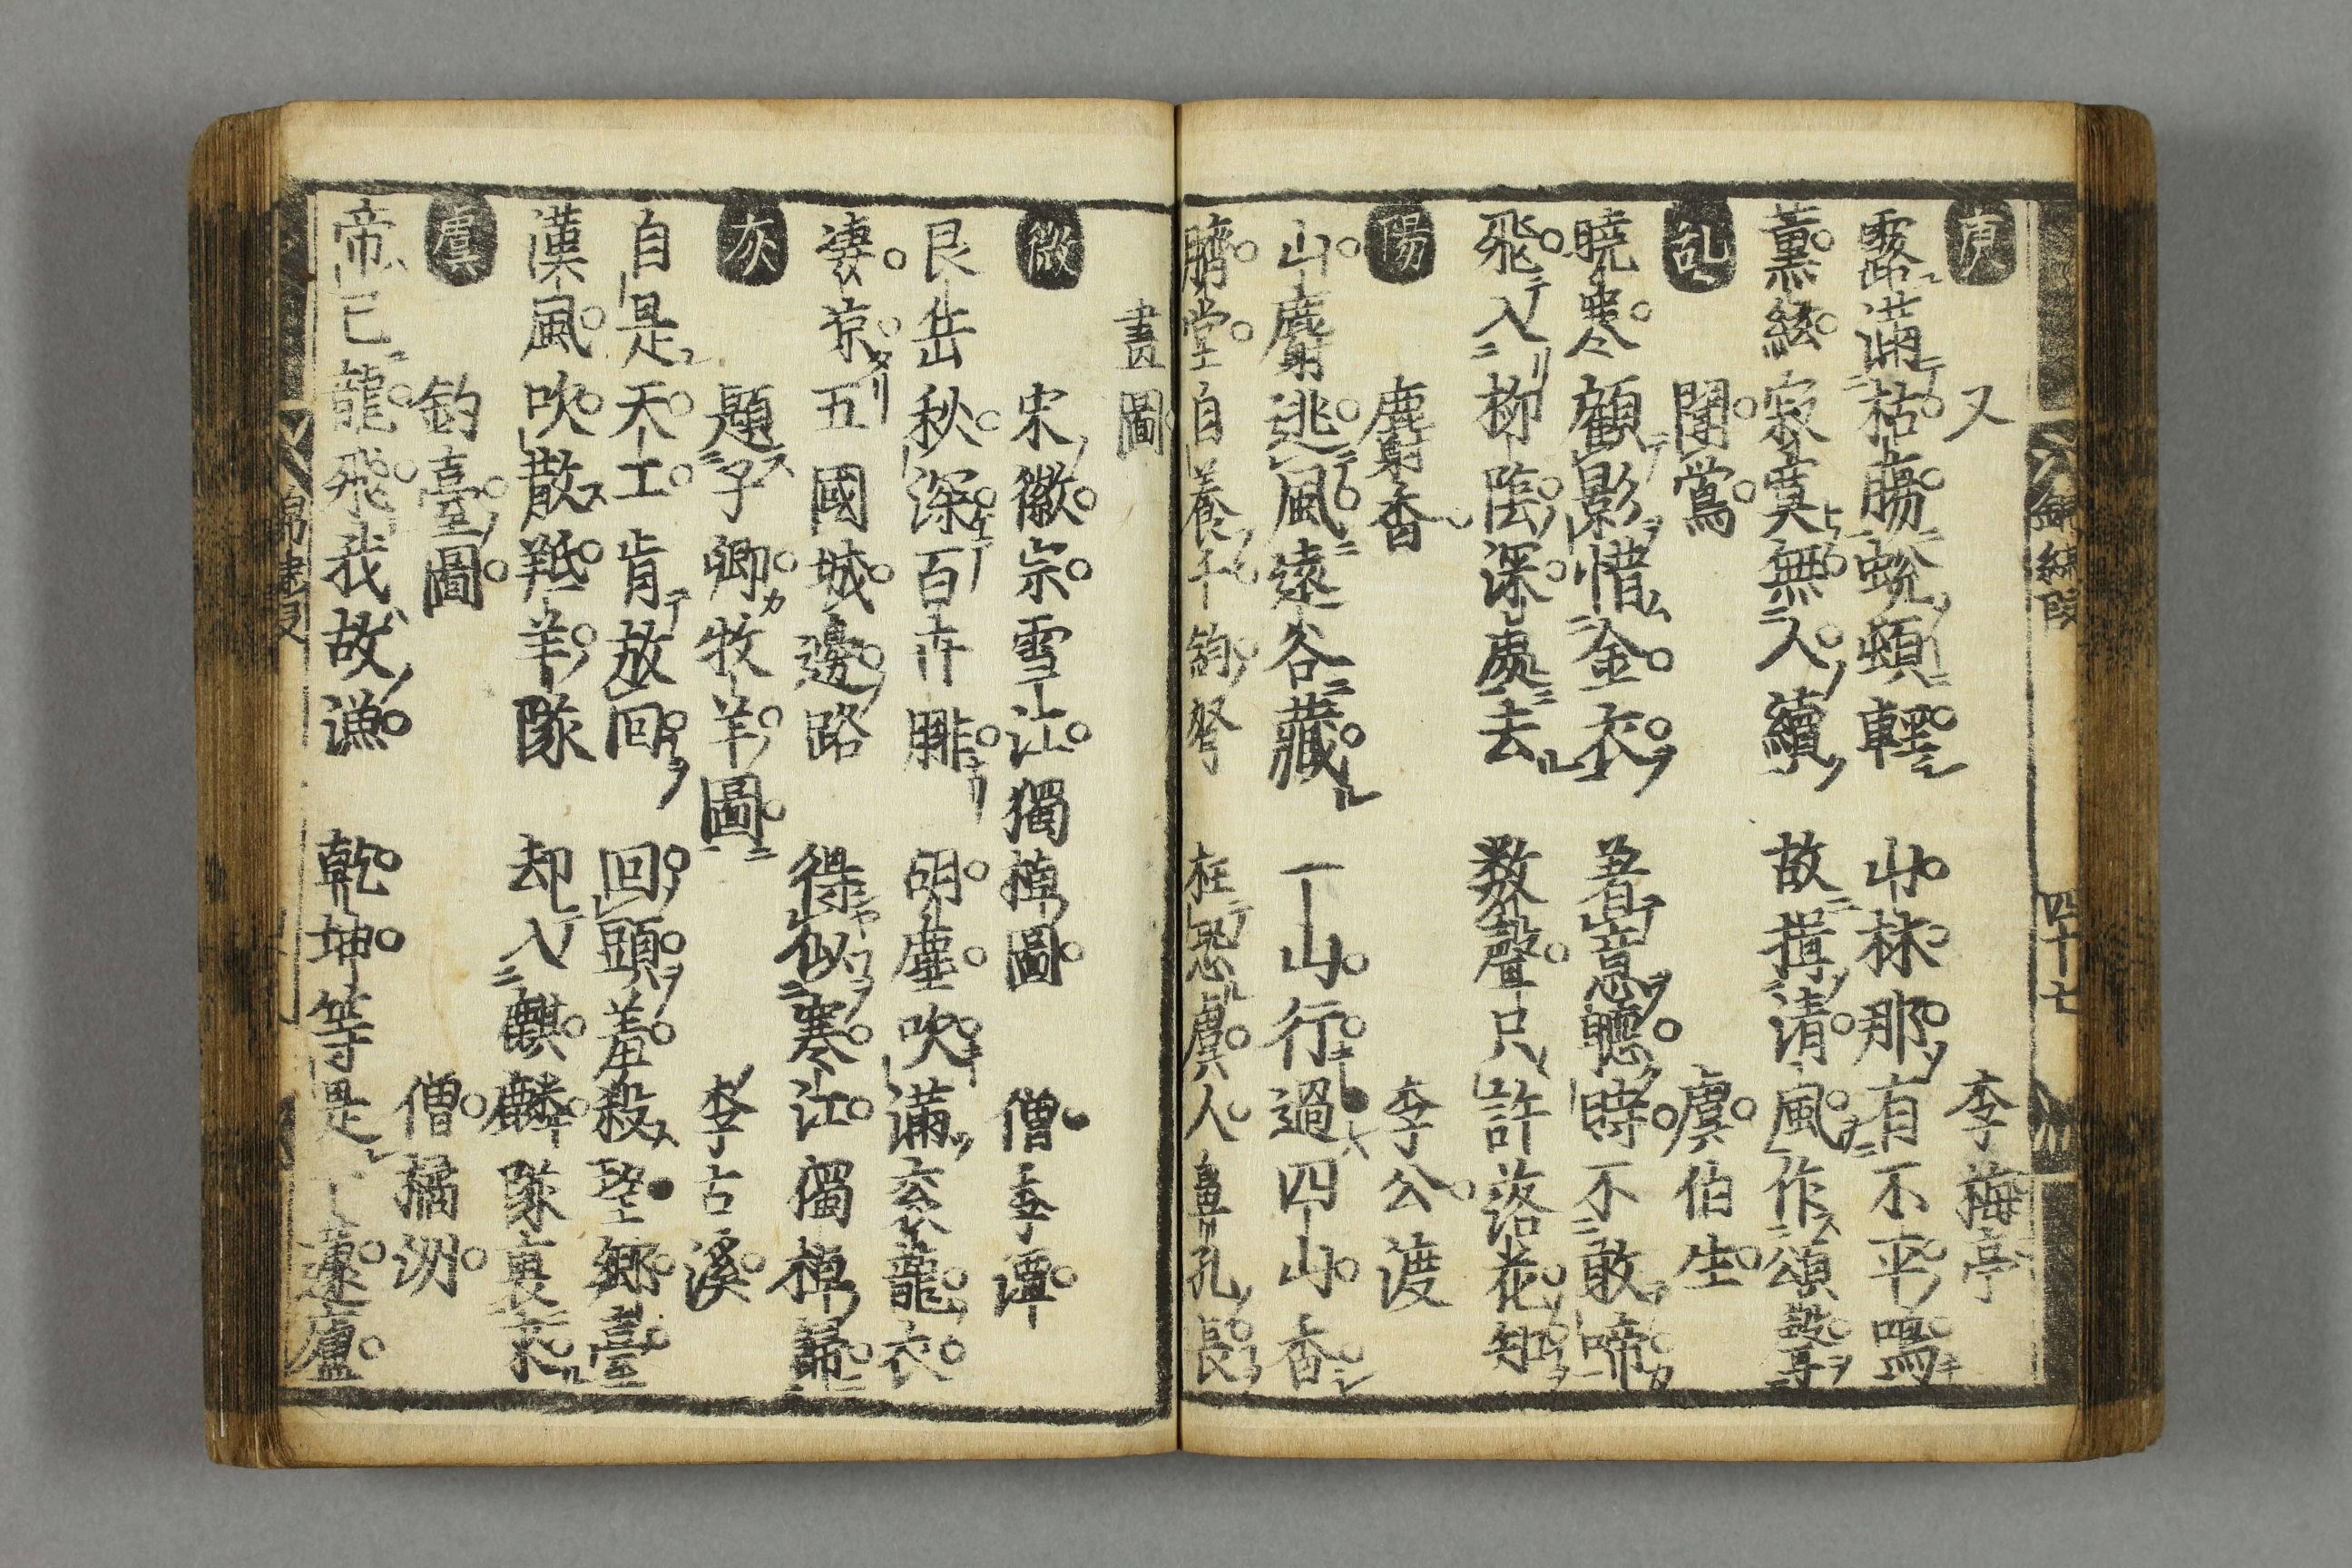 庚 又 李梅亭
露滿枯腸蛻頬輕 山林那有不平鳴
薫絃寂寞無人續 故揖清風作頌聲
乱 聞鶯 虞伯生
曉寒顧影惜金衣 着意聽時不敢啼
飛入柳陰深處去 数聲只許落花知
陽 麝香 李公渡
山麝逃風遠谷藏 一山行過四山香
臍堂自養千鈞弩 枉恐虞人鼻孔長
錦繡段 四十七
畫圖
微 宋徽宗雪江獨棹圖 僧季潭
艮岳秋深百卉腓 胡塵吹滿衮龍衣
凄凉五國城邊路 得似寒江獨棹歸
灰 題子卿牧羊圖 李古溪
自是天工肯放回 回頭羞殺望鄉臺
漢風吹散羝羊隊 却入麒麟隊裏來
虞 釣臺圖 僧橘洲
帝已龍飛我故漁 乾坤等是一蘧廬